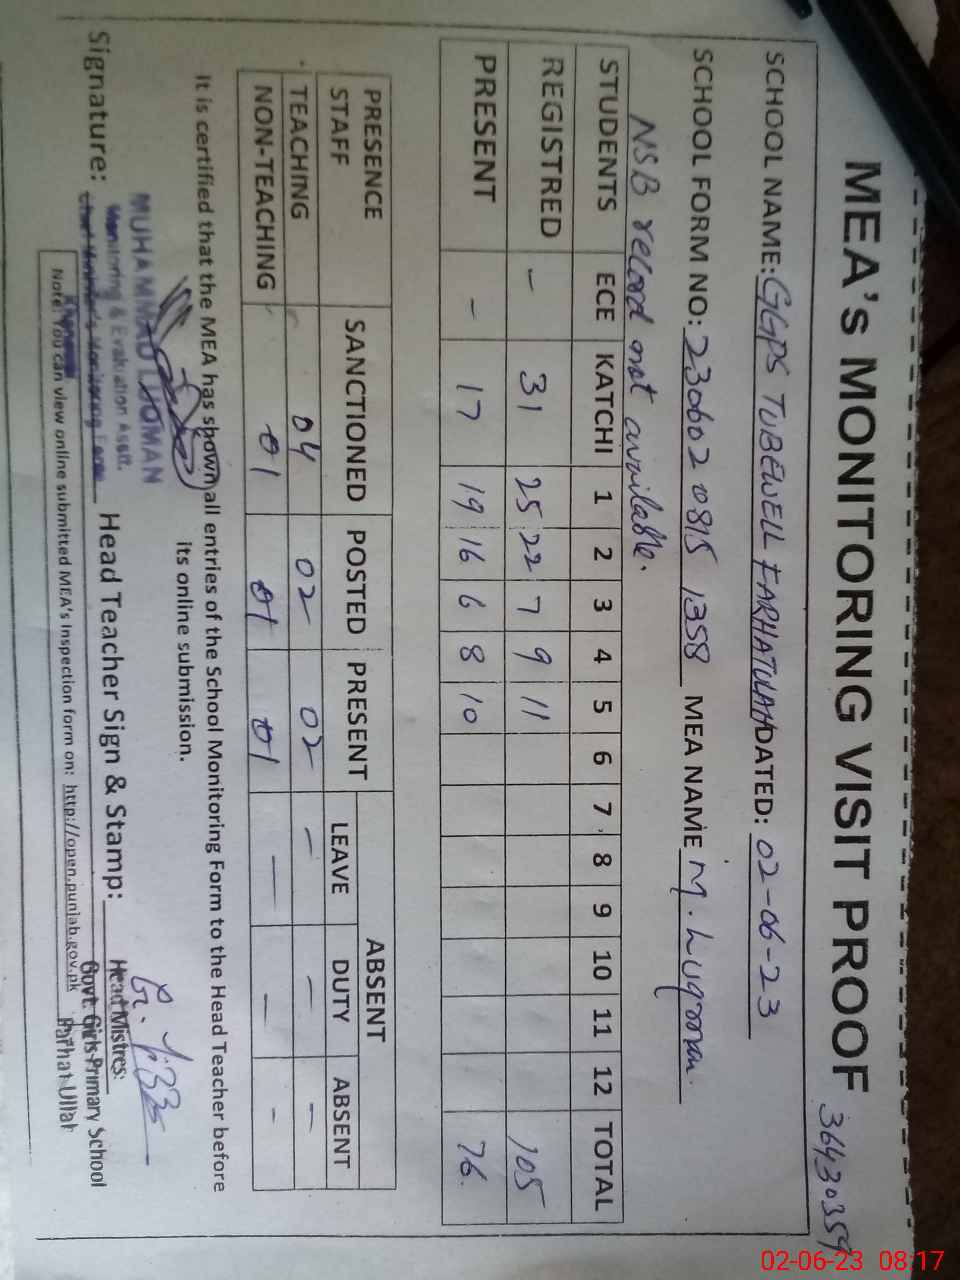 MEA's MONITORING VISIT PROOF
36430359
SCHOOL NAME: GGPS TUBEWELL FARHATULAH DATED: 02-06-23
SCHOOL FORM NO: 230602 0815 1358 MEA NAME M. Luqman.
NSB record not available.
STUDENTS ECE KATCHI 1 2 3 4 5 6 7 8 9 10 11 12 TOTAL
REGISTRED - 31 25 22 7 9 11 105
PRESENT - 17 19 16 6 8 10 76.
PRESENCE STAFF SANCTIONED POSTED PRESENT ABSENT
LEAVE DUTY ABSENT
TEACHING 04 02 02 - - -
NON-TEACHING 01 01 01 - - -
It is certified that the MEA has shown all entries of the School Monitoring Form to the Head Teacher before
its online submission.
MUHAMMAD LUQMAN
Monitoring & Evaluation Asstt.
Signature: Chief Minister's Monitoring Force Head Teacher Sign & Stamp:
Head Mistres:
Govt. Girls Primary School
Farhat Ullah
Note: You can view online submitted MEA's Inspection form on: http://open.punjab.gov.pk
02-06-23 08:17